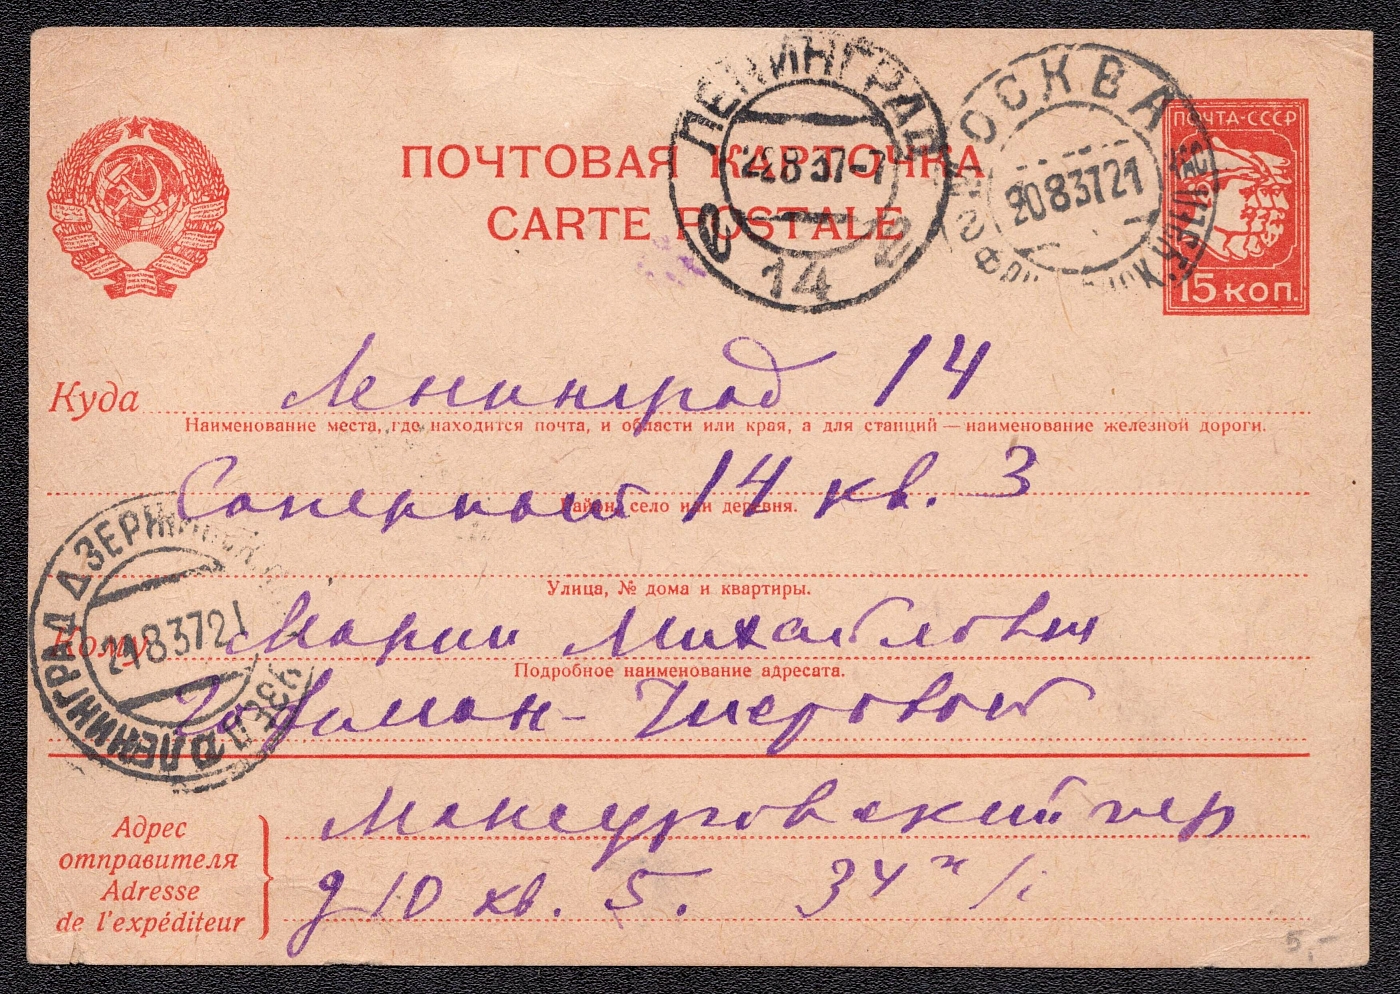 ПОЧТОВАЯ КАРТОЧКА
CARTE POSTALE
ПОЧТА-СССР
15 КОП.
ЛЕНИНГРАД
8 37-7
14
МОСКВА
20 8 37 21
Куда Ленинград 14
Наименование места, где находится почта, и области или края, а для станций — наименование железной дороги.
Саперный 14 кв. 3
Район, село или деревня.
Улица, № дома и квартиры.
Кому Марии Михайловне
Подробное наименование адресата.
Чистовой
ЛЕНИНГРАД ДЗЕРЖИНСК
8 37 21
Адрес
отправителя
Adresse
de l'expéditeur
Мансуровский пер
д 10 кв. 5.
5,-